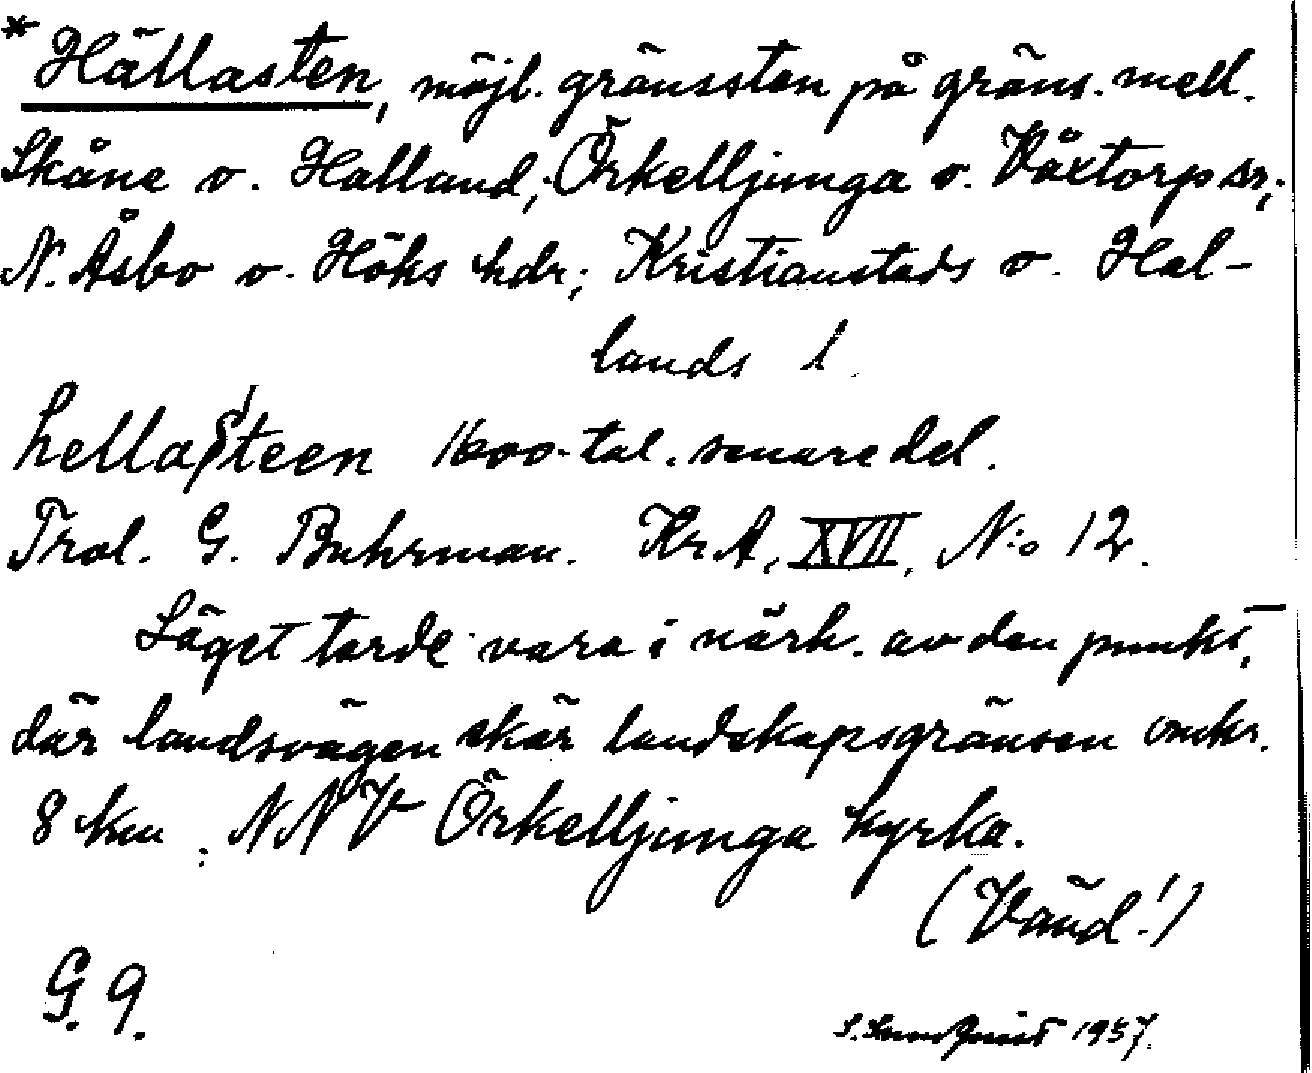 *Hällasten, möjl. gränssten på gräns. mell.
Skåne o. Halland; Örkelljunga o. Våxtorp snr;
N. Åsbo o. Höks hdr; Kristianstads o. Hal-
lands l.
hellaſteen 1600-tal. senare del.
Trol. G. Buhrman. Kr.A, XVII, N:o 12.
Läget torde vara i närh. av den punkt,
där landsvägen skär landskapsgränsen omkr.
8 km. NNV Örkelljunga kyrka.
(Vänd!)
G. 9.
S. Sundquist 1937.